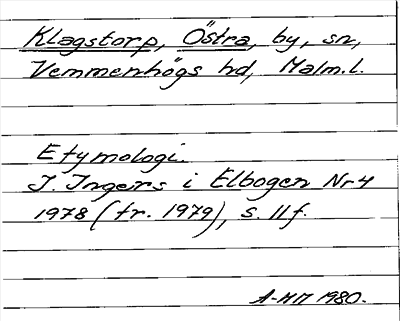 Klagstorp, Östra, by, sn,
Vemmenhögs hd, Malm.l.
Etymologi.
I. Ingers i Elbogen Nr 4
1978 (tr. 1979), s. 11 f.
A-M 1980.